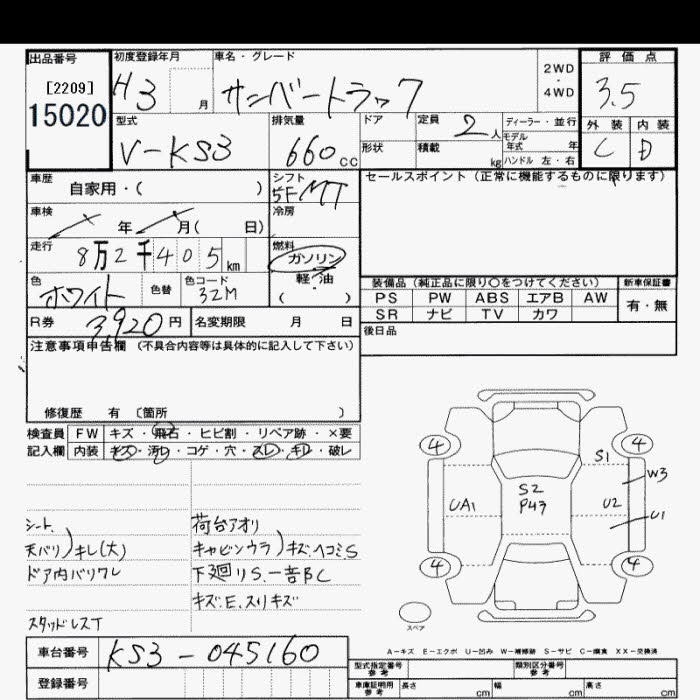 出品番号 初度登録年月 車名・グレード 評価点
[2209] H3 月 サンバートラック 2WD ・ 4WD 3.5
15020
型式 排気量 ドア 定員 2人 ディーラー・並行 外装 内装
V-KS3 660cc 形状 積載 kg モデル年式 年 C D
ハンドル 左・右
車歴 自家用・( ) シフト 5F MT セールスポイント (正常に機能するものに限ります)
車検 年 月( 日) 冷房
走行 8万2千405km 燃料 ガソリン 軽・油 ( )
色 ホワイト 色替 色コード 32M
装備品 (純正品に限り○をつけてください) 新車保証書
PS PW ABS エアB AW 有・無
SR ナビ TV カワ
R券 3,920円 名変期限 月 日
後日品
注意事項申告欄 (不具合内容等は具体的に記入して下さい)
修復歴 有 〔箇所 〕
検査員 FW キズ・飛石・ヒビ割・リペア跡・×要
記入欄 内装 キズ・汚れ・コゲ・穴・スレ・キレ・破レ
4 4
S1
W3
UA1 S2 U2
P43 U1
4 4
シート、 荷台アオリ
天バリ)キレ(大) キャビンウラ)キズ、ヘコミ、S
ドア内バリワレ 下廻りS、一部C
キズ、E、スリキズ
スタッドレスT
スペア
車台番号 KS3-045160
A-キズ E-エクボ U-凹み W-補修跡 S-サビ C-腐食 XX-交換済
型式指定番号 参考 類別区分番号 参考
登録番号 車庫証明用 参考 長さ cm 幅 cm 高さ cm